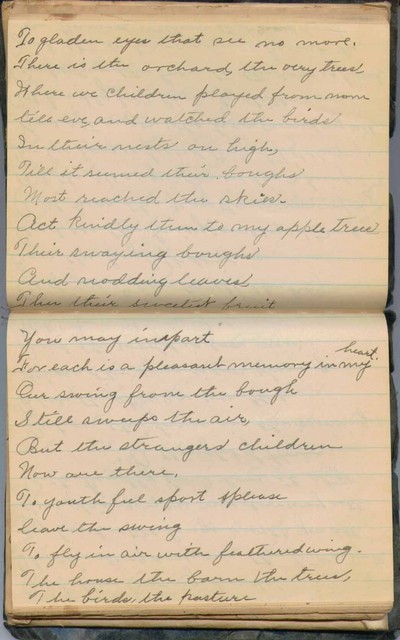 To gladen eyes that see no more.
There is the orchard, the very trees,
Where we children played from morn
till eve, and watched the birds
In their nests on high,
Till it seemed their boughs
Most reached the skies.
Act kindly then to my apple trees
Their swaying boughs
And nodding leaves,
Then their sweetest fruit
You may inspart
For each is a pleasant memory in my heart.
Our swing from the bough
Still sweeps the air,
But the strangers children
Now are there.
To youthful sport please
leave the swing
To fly in air with feathered wing.
The house the barn the trees,
The birds, the pasture